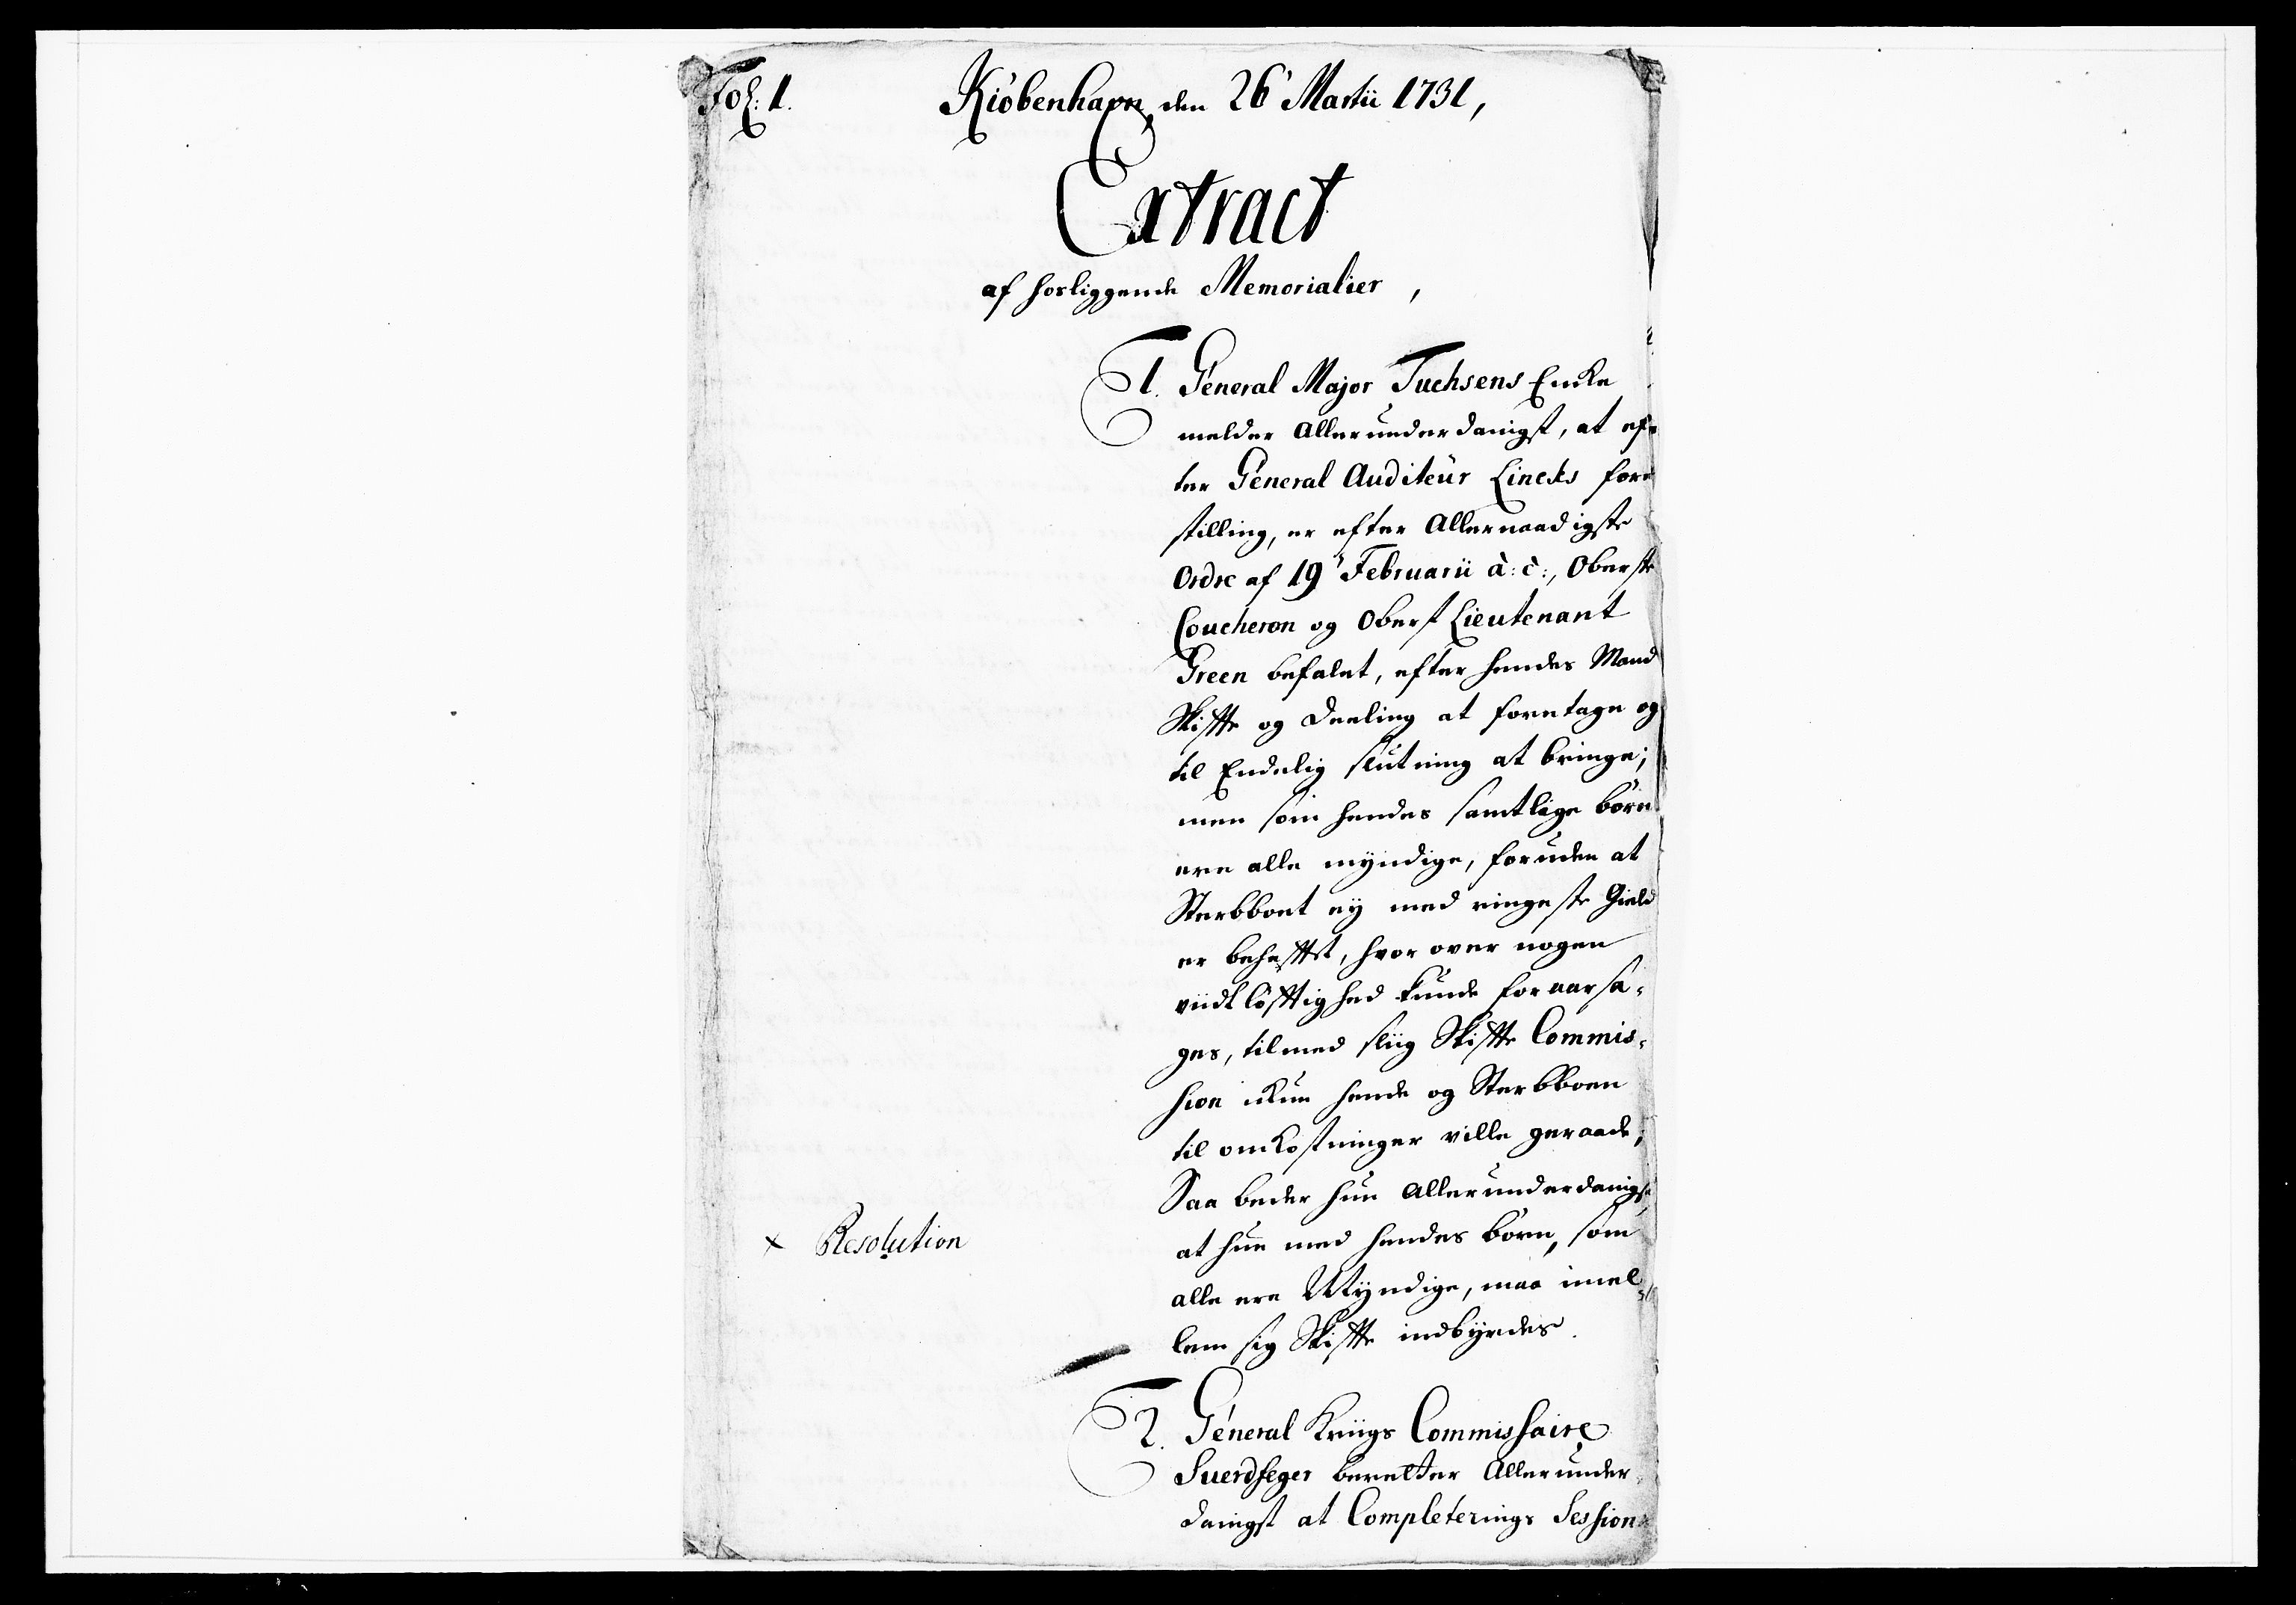 Fol: 1.
Kiöbenhavn, den 26 Martii 1731,
Extract
af hosliggende Memorialier,
1. General Major Tuchsens Encke
melder Allerunderdanigst, at ef-
ter General Auditeur Lincks fore
stilling, er efter Allernaadigste
Ordre af 19 Februarii à: c:, Oberste
Coucheron og Oberst Lieutenant
Green befalet, efter hendes Mand
Skiffte og Deeling at foretage og
til Endelig slutning at bringe;
men som hendes samtlige börn
ere alle myndige, foruden at
Sterbboet ey med ringeste Gield
er behefftet, hvor over nogen
viidtlöfftighed kunde foraarsa-
ges, tilmed sliig Skiffte Commis-
sion ickun hende og Sterbboen
til omkostninger ville geraade;
Saa beder hun Allerunderdanigst,
at hun med hendes börn, som
× Resolution
alle ere Myndige, maa imel-
lem sig Skiffte indbyrdes.
2. General Kriigs Commissaire
Suerdfeger beretter Allerunder-
danigst at Completerings Session